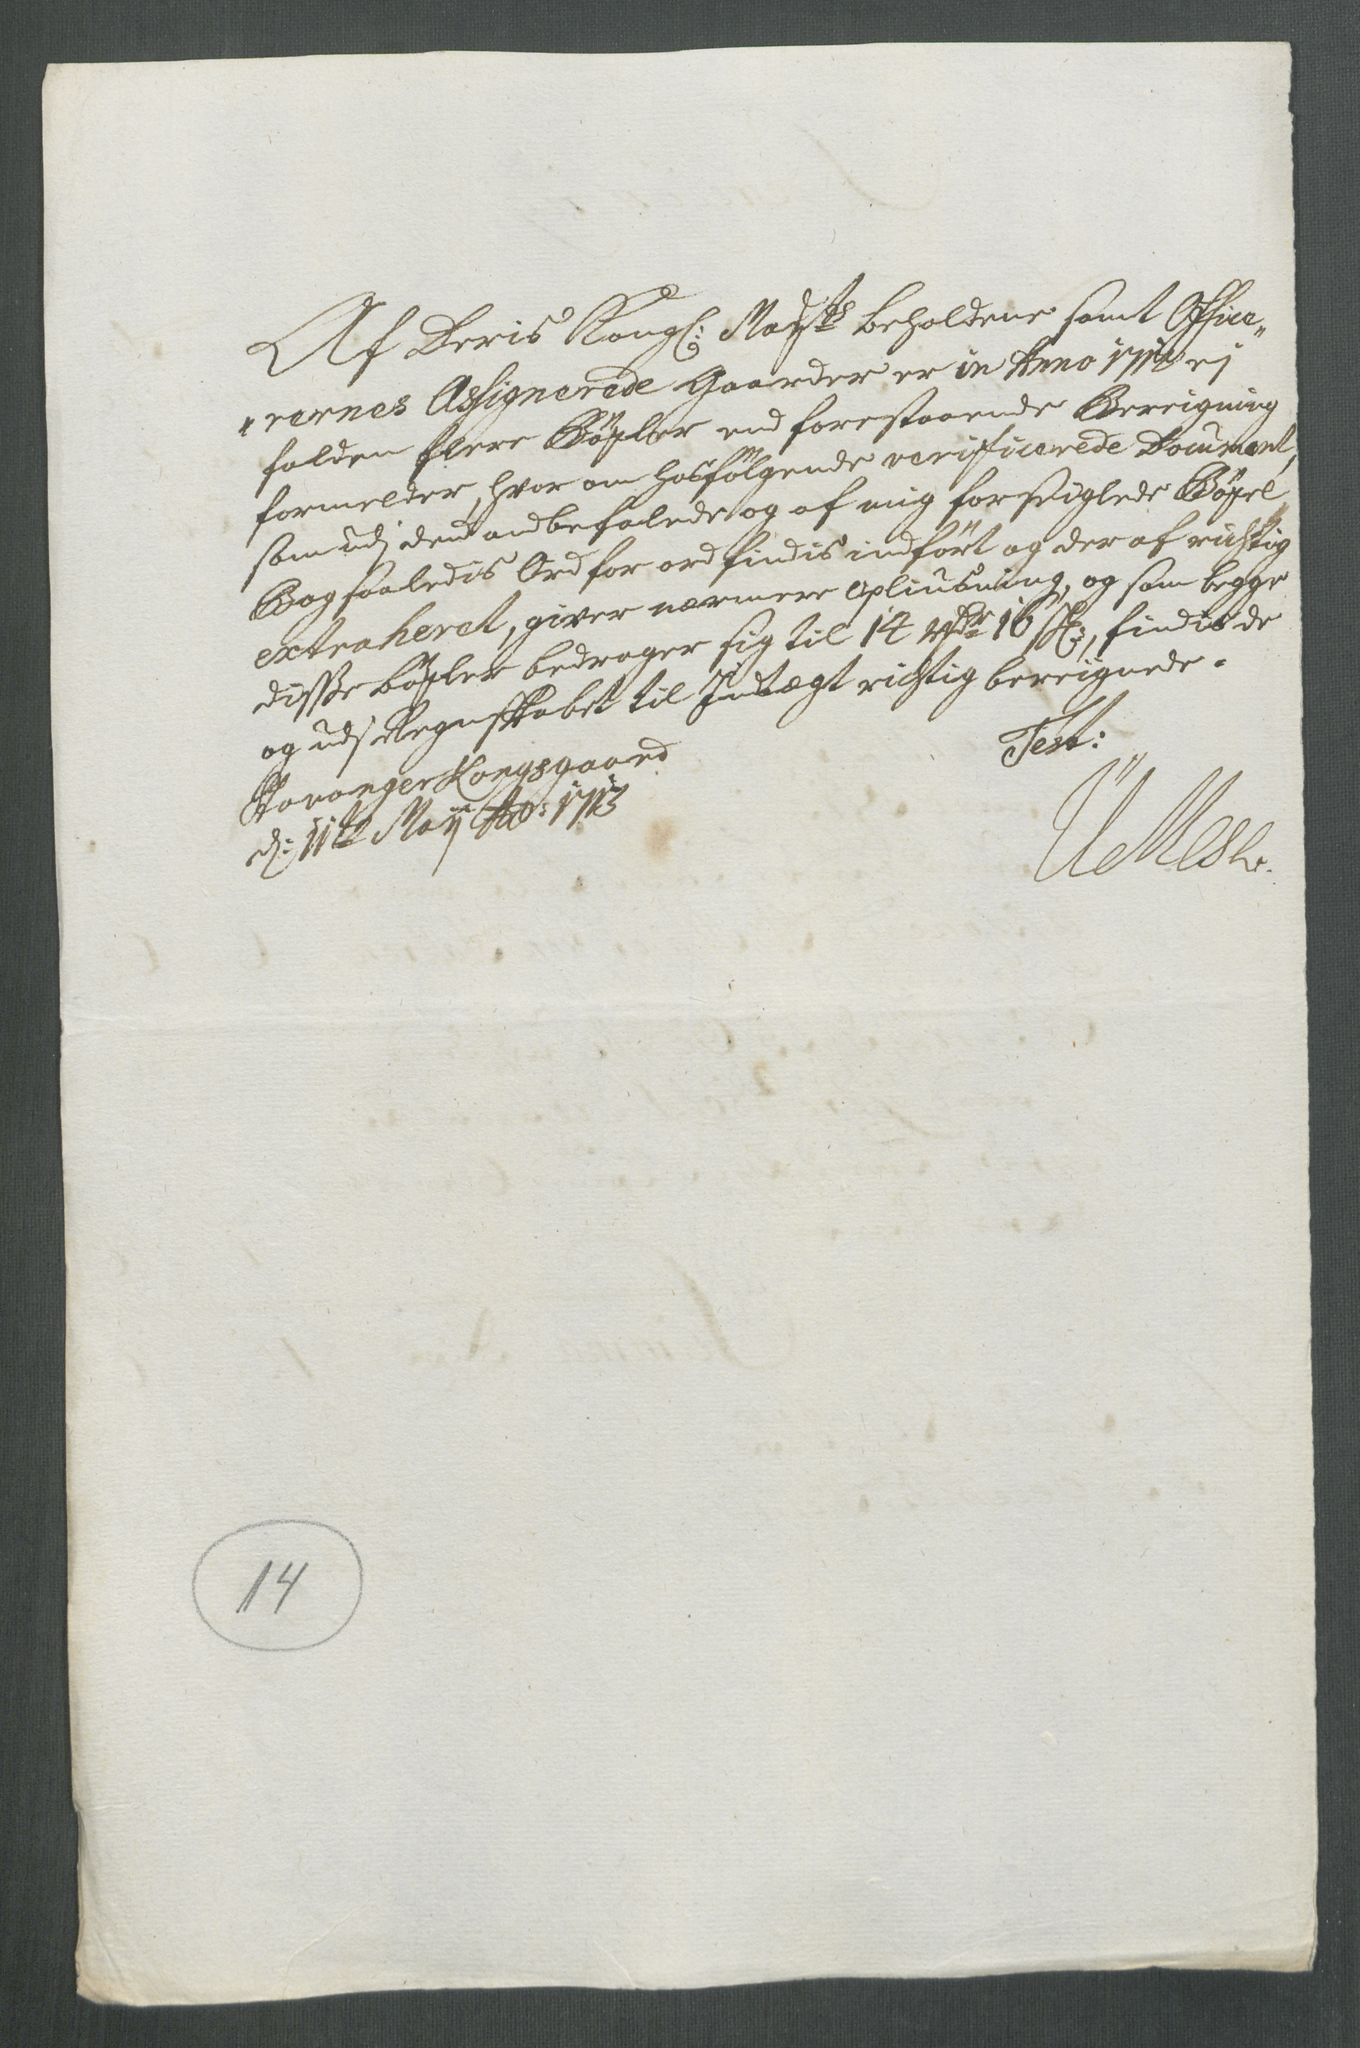 Af Deris Kongl: Maysts beholdene samt Officer„
„rernes Assignerede Gaarder er in Anno 1712 ej
falden flere Böxler end forestaaende Bereigning
formelder, hvor om hosfölgende verificerede Document,
som udj den anbefalede og af mig forseiglede Böxel
Bog saaledis Ord for ord findis indfört og der af richtig
extraheret, giver nærmere opliusning, og som begge
disse böxler bedrager sig til 14 rdr 16 s, findis de
og udj Regnskabet til Indtægt richtig bereignede.
Stavanger Kongsgaard
d: 11te Maij Ao: 1713
Test:
14